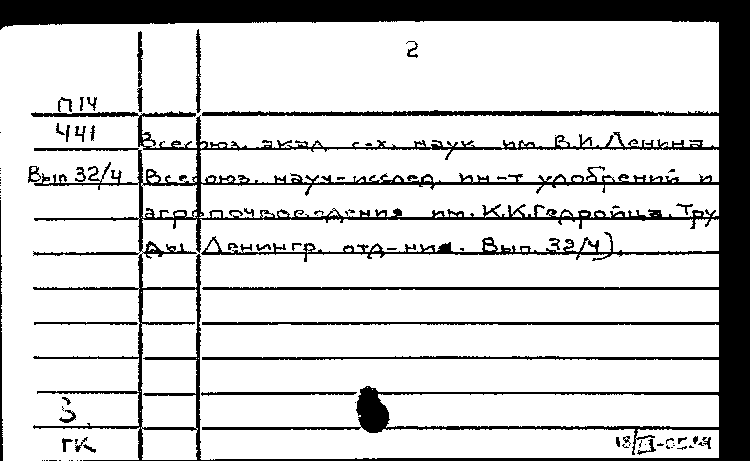 2
П14
441
Всесоюз. акад. с-х. наук им. В.И. Ленина.
Вып 32/4 Всесоюз. науч-исслед. ин-т удобрений и
агропочвоведения им. К.К. Гедройца. Тру
ды Ленингр. отд-ния. Вып. 32/4).
3
ГК